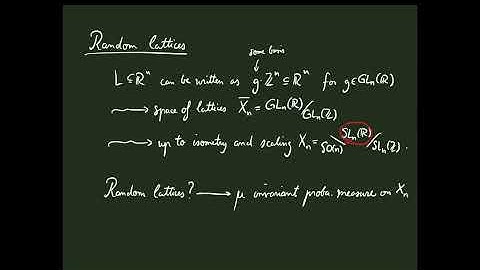 Random lattices
some basis
L ⊆ ℝⁿ can be written as g·ℤⁿ ⊆ ℝⁿ for g ∈ GLₙ(ℝ)
⟿ space of lattices X̅ₙ = GLₙ(ℝ)/GLₙ(ℤ)
⟿ up to isometry and scaling Xₙ = SO(n)\SLₙ(ℝ)/SLₙ(ℤ).
Random lattices? ⟶ μ invariant proba. measure on Xₙ